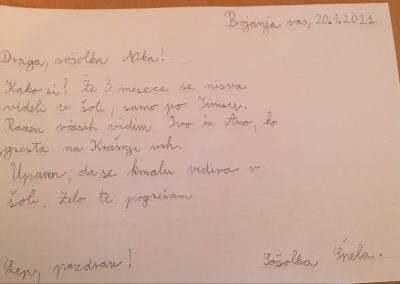 Bojanja vas, 20.1.2021
Draga, sošolka Nika!
Kako si? Že 3 mesece se nisva
videli v šoli, samo po Timsu.
Razen včasih vidim Ivo in Ano, ko
gresta na Krašnji vrh.
Upam, da se kmalu vidiva v
šoli. Zelo te pogrešam
Lep, pozdrav! Sošolka Špela.